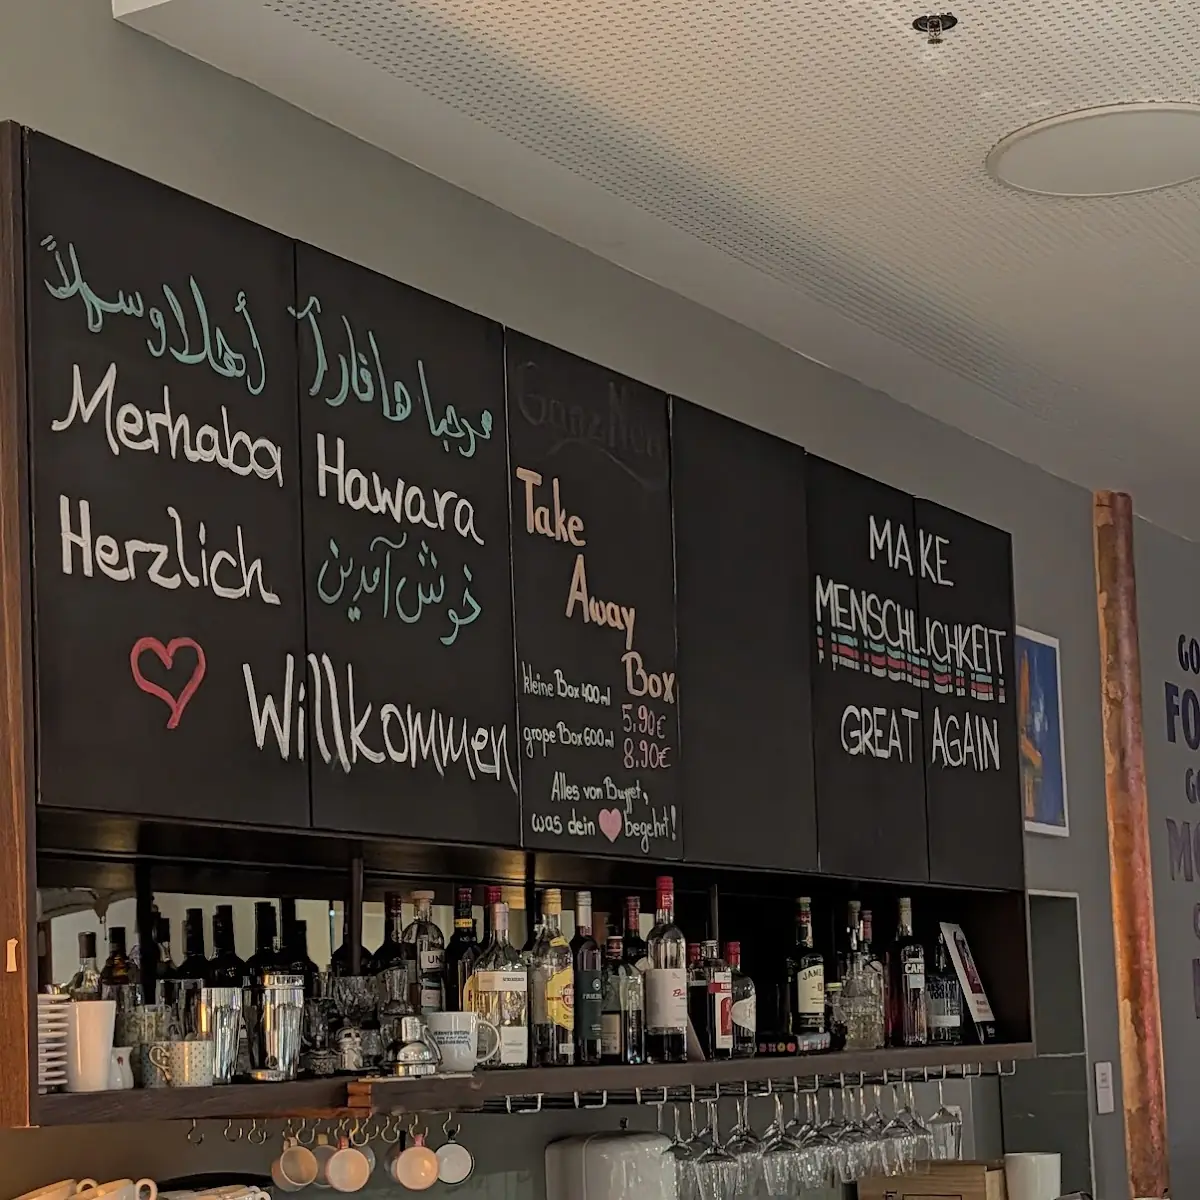 أهلا وسهلاً
Merhaba
Herzlich
مرحبا هافارآ
Hawara
خوش آمدین
Willkommen
Take
Away
Box
kleine Box 400ml 5,90€
große Box 600ml 8.90€
Alles von Buffet,
was dein ♥ begehrt!
MAKE
MENSCHLICHKEIT
GREAT AGAIN